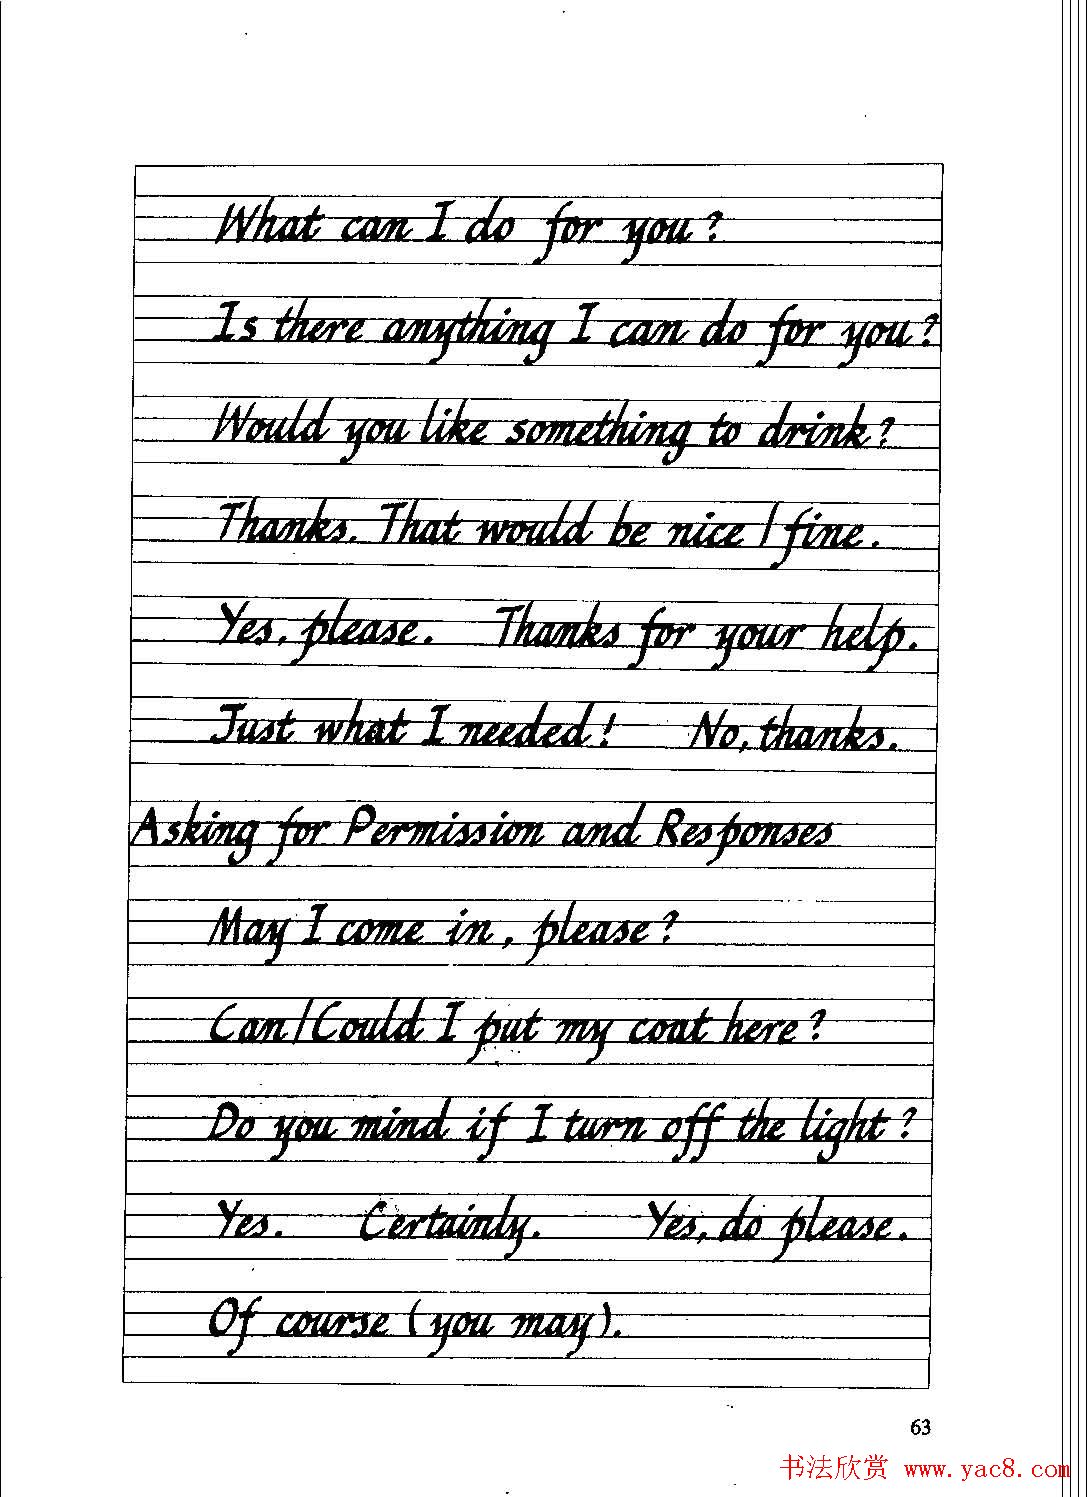 What can I do for you?
Is there anything I can do for you?
Would you like something to drink?
Thanks. That would be nice / fine.
Yes, please. Thanks for your help.
Just what I needed! No, thanks.
Asking for Permission and Responses
May I come in, please?
Can/Could I put my coat here?
Do you mind if I turn off the light?
Yes. Certainly. Yes, do please.
Of course (you may).
63
书法欣赏 www.yac8.com